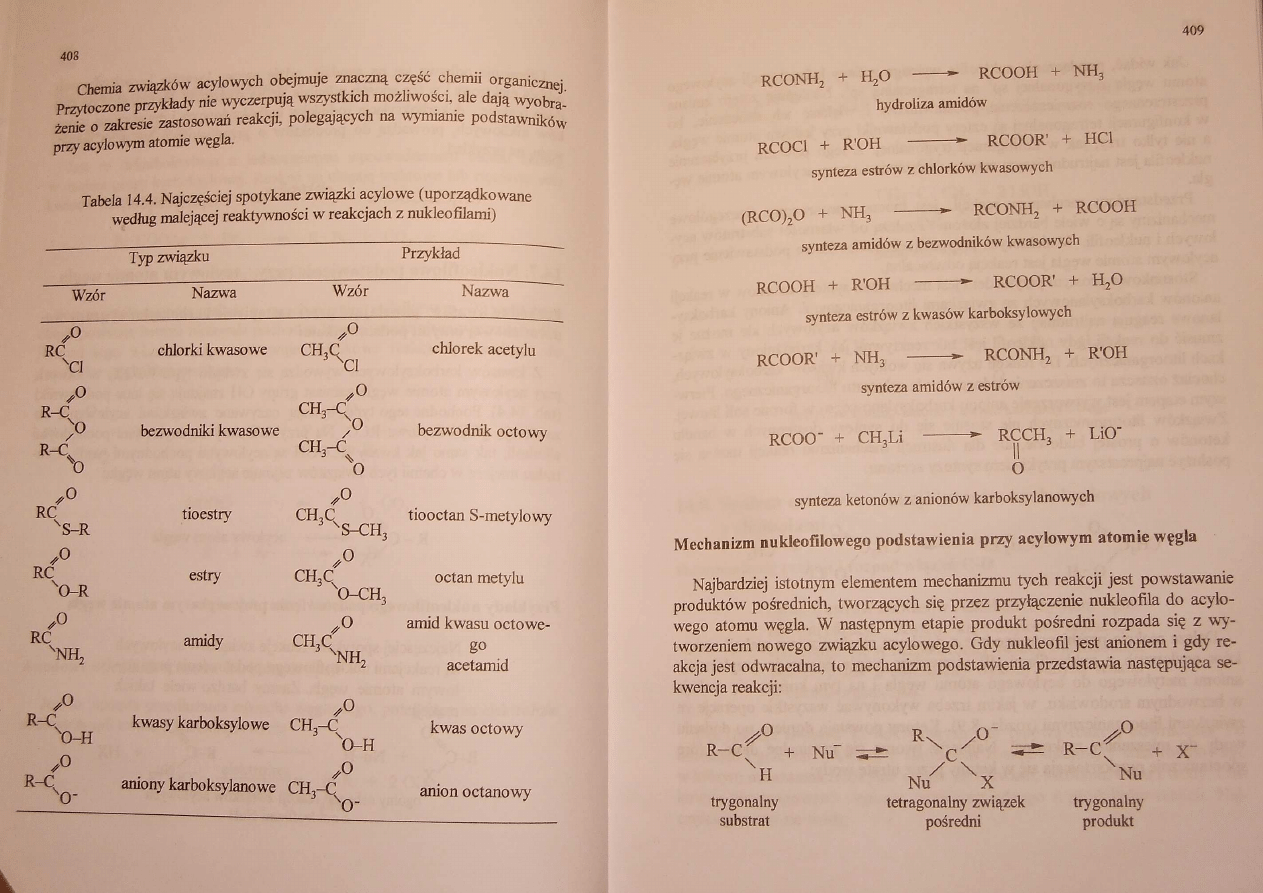 408
Chemia związków acylowych obejmuje znaczną część chemii organicznej.
Przytoczone przykłady nie wyczerpują wszystkich możliwości, ale dają wyobra-
żenie o zakresie zastosowań reakcji, polegających na wymianie podstawników
przy acylowym atomie węgla.
Tabela 14.4. Najczęściej spotykane związki acylowe (uporządkowane
według malejącej reaktywności w reakcjach z nukleofilami)
Typ związku Przykład
Wzór Nazwa Wzór Nazwa
O O
RC chlorki kwasowe CH₃C chlorek acetylu
Cl Cl
O O
R–C CH₃–C
O bezwodniki kwasowe O bezwodnik octowy
R–C CH₃–C
O O
O O
RC tioestry CH₃C tiooctan S-metylowy
S–R S–CH₃
O O
RC estry CH₃C octan metylu
O–R O–CH₃
O O amid kwasu octowe-
RC amidy CH₃C go
NH₂ NH₂ acetamid
O O
R–C kwasy karboksylowe CH₃–C kwas octowy
O–H O–H
O O
R–C aniony karboksylanowe CH₃–C anion octanowy
O⁻ O⁻
409
RCONH₂ + H₂O → RCOOH + NH₃
hydroliza amidów
RCOCl + R'OH → RCOOR' + HCl
synteza estrów z chlorków kwasowych
(RCO)₂O + NH₃ → RCONH₂ + RCOOH
synteza amidów z bezwodników kwasowych
RCOOH + R'OH → RCOOR' + H₂O
synteza estrów z kwasów karboksylowych
RCOOR' + NH₃ → RCONH₂ + R'OH
synteza amidów z estrów
RCOO⁻ + CH₃Li → RCCH₃ + LiO⁻
O
synteza ketonów z anionów karboksylanowych
Mechanizm nukleofilowego podstawienia przy acylowym atomie węgla
Najbardziej istotnym elementem mechanizmu tych reakcji jest powstawanie
produktów pośrednich, tworzących się przez przyłączenie nukleofila do acylo-
wego atomu węgla. W następnym etapie produkt pośredni rozpada się z wy-
tworzeniem nowego związku acylowego. Gdy nukleofil jest anionem i gdy re-
akcja jest odwracalna, to mechanizm podstawienia przedstawia następująca se-
kwencja reakcji:
O R O⁻ O
R–C + Nu⁻ ⇌ C ⇌ R–C + X⁻
H Nu X Nu
trygonalny tetragonalny związek trygonalny
substrat pośredni produkt